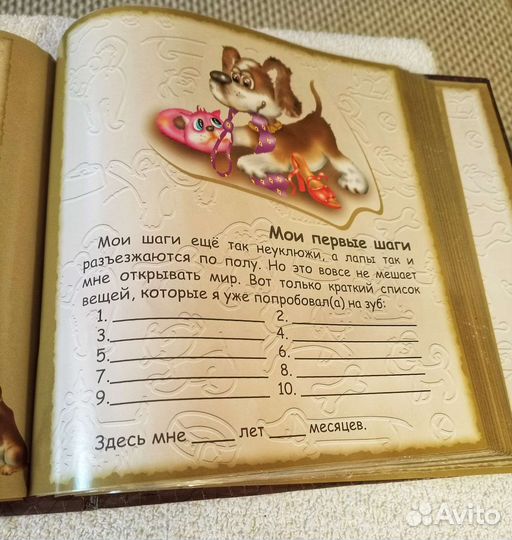 Мои первые шаги
Мои шаги ещё так неуклюжи, а лапы так и
разъезжаются по полу. Но это вовсе не мешает
мне открывать мир. Вот только краткий список
вещей, которые я уже попробовал(а) на зуб:
1. ____________ 2. ____________
3. ____________ 4. ____________
5. ____________ 6. ____________
7. ____________ 8. ____________
9. ____________ 10. ____________
Здесь мне ____ лет ____ месяцев.
Avito